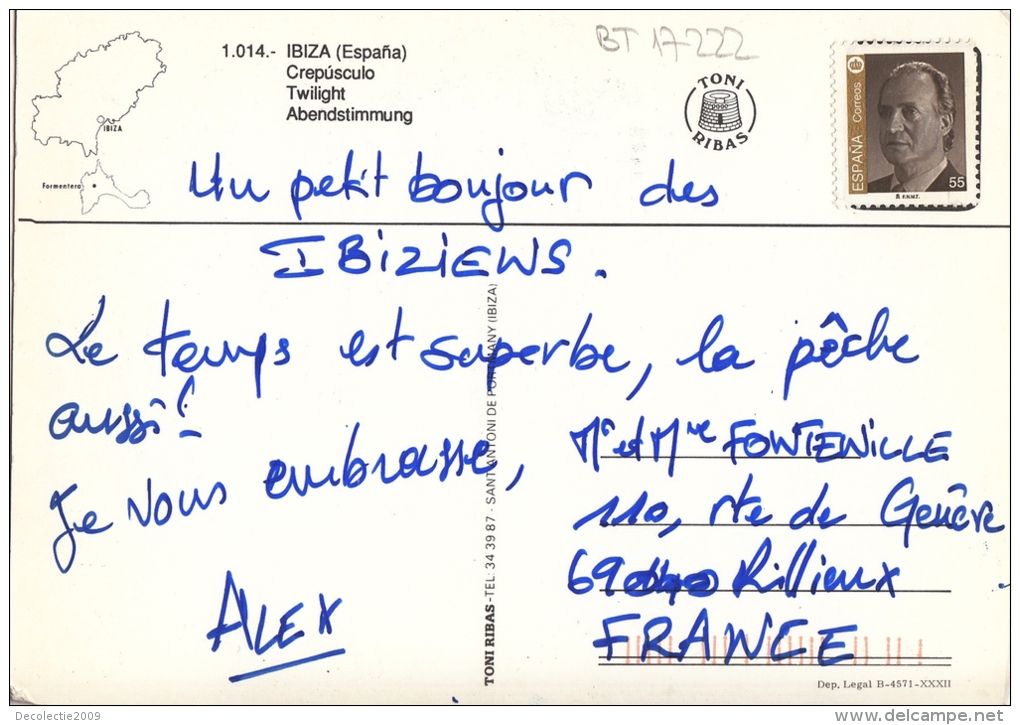 BT 17222
1.014.- IBIZA (España)
Crepúsculo
Twilight
Abendstimmung
IBIZA
Formentera
TONI
RIBAS
ESPAÑA
Correos
55
F.N.M.T.
Un petit boujour des
IBIZIENS.
Le temps est superbe, la pêche
aussi!
Je vous embrasse,
ALEX
TONI RIBAS - TEL. 34 39 87 - SANT ANTONI DE PORTMANY (IBIZA)
Mr et Mme FONTENILLE
110, rte de Genève
69 Rillieux
FRANCE
Dep. Legal B-4571-XXXII
Decolectie2009
delcampe.net